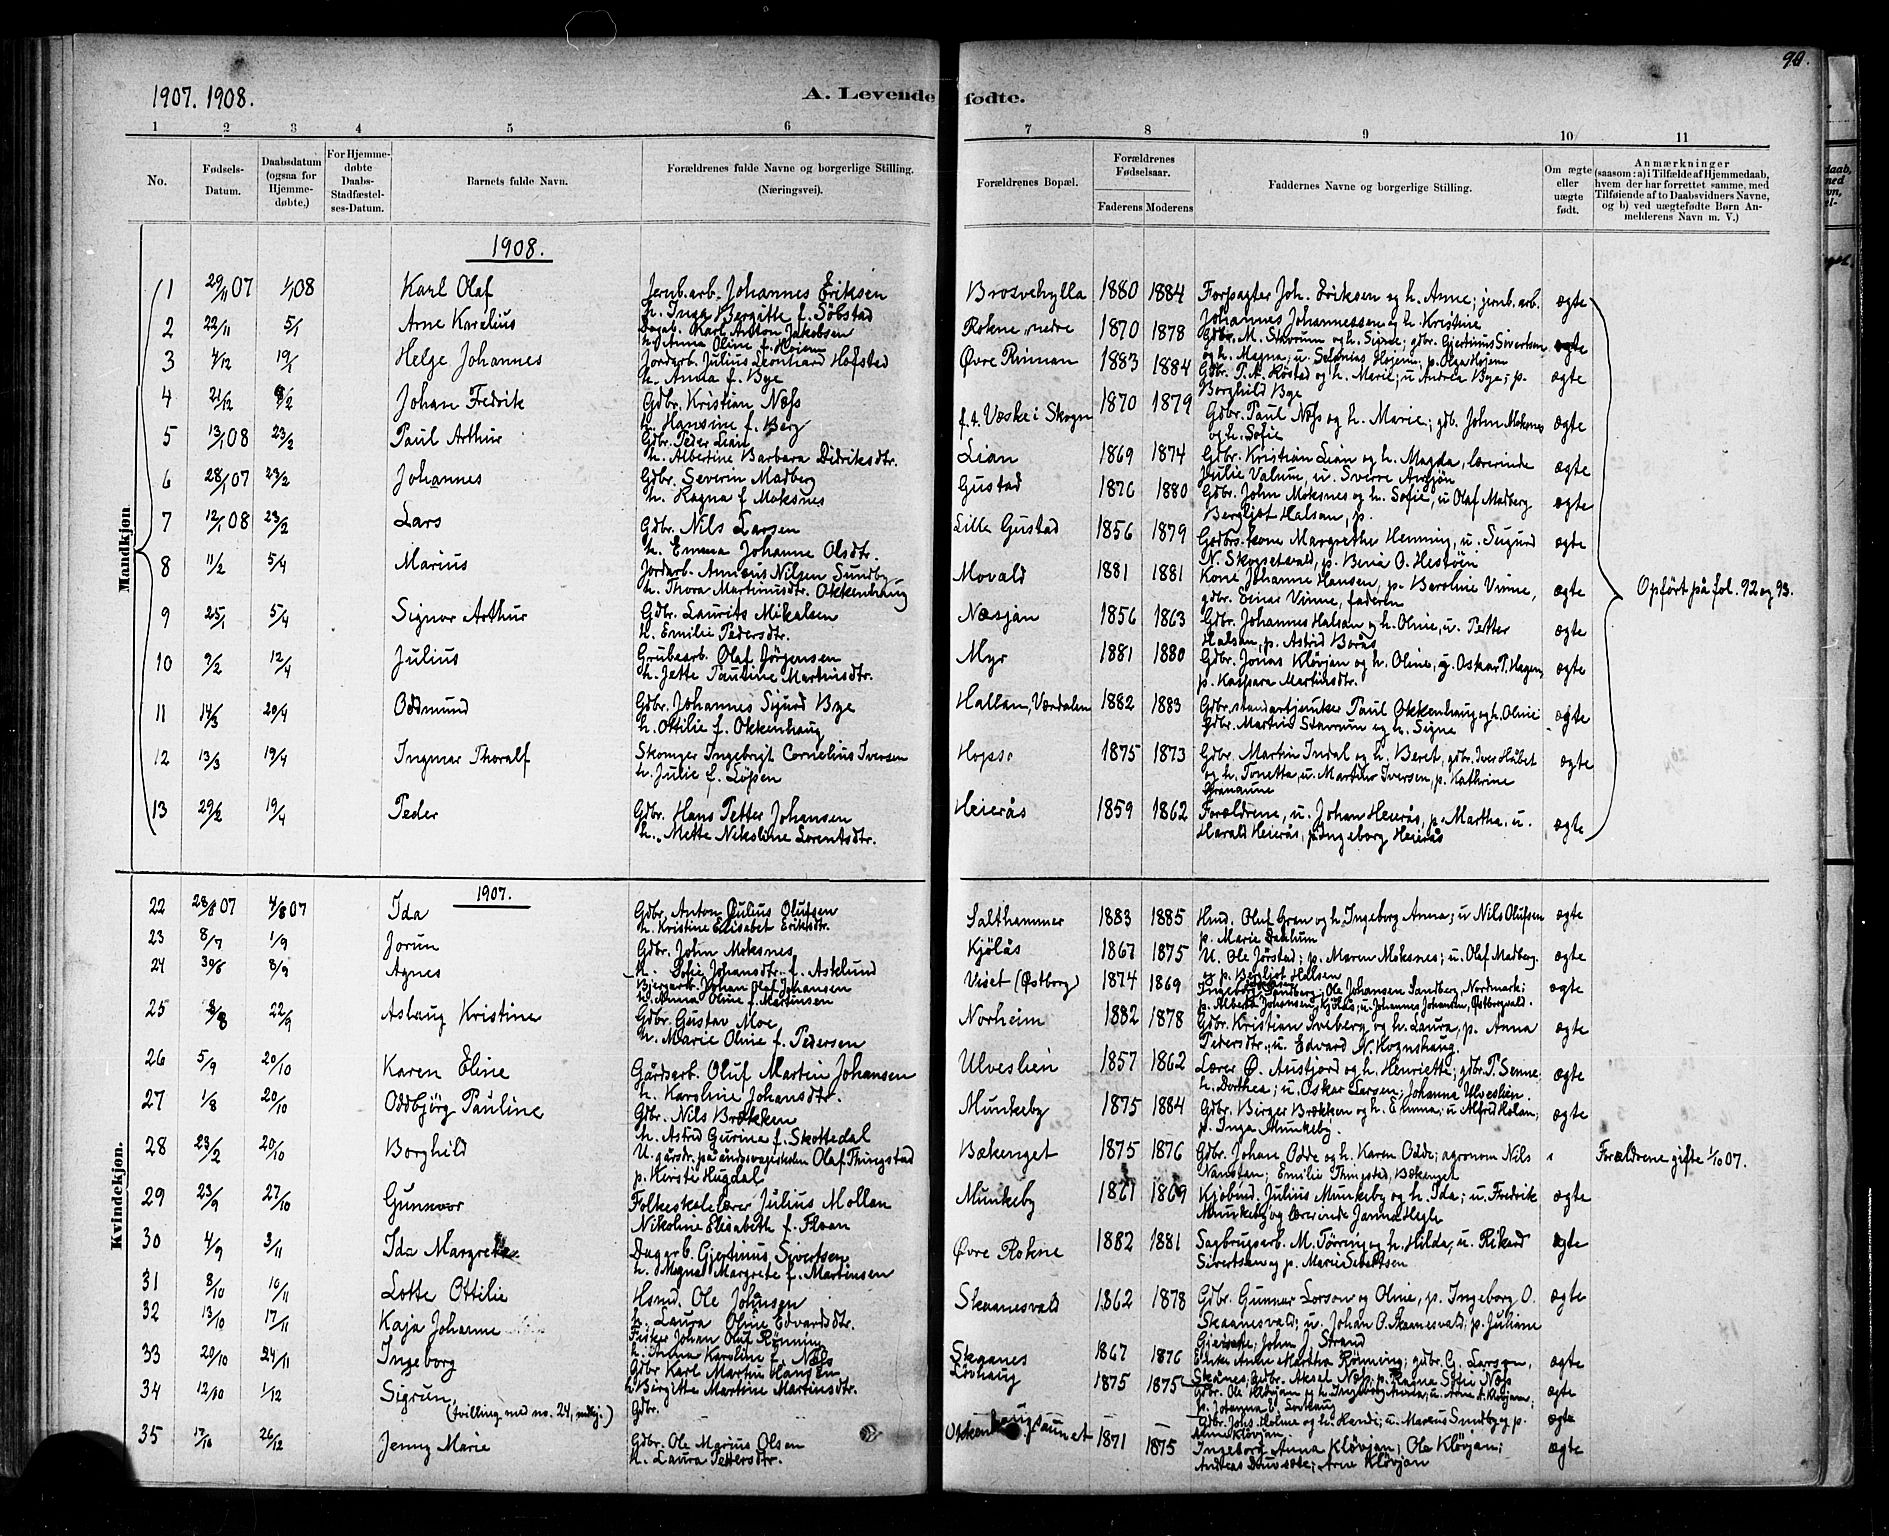 90.
1907. 1908.
A. Levende fødte.
1 2 3 4 5 6 7 8 9 10 11
No.
Fødsels-Datum.
Daabsdatum (ogsaa for Hjemmedøbte.)
For Hjemmedøbte Daabs-Stadfæstelses-Datum.
Barnets fulde Navn.
Forældrenes fulde Navne og borgerlige Stilling. (Næringsvei).
Forældrenes Bopæl.
Forældrenes Fødselsaar.
Faderens Moderens
Faddernes Navne og borgerlige Stilling.
Om ægte eller uægte født.
Anmærkninger
(saasom: a) i Tilfælde af Hjemmedaab,
hvem der har forrettet samme, med
Tilføiende af to Daabsvidners Navne,
og b) ved uægtefødte Børn An-
melderens Navn m. V.)
Mandkjøn.
1908.
1 29/11 07 1/1 08 Karl Olaf Jernb.arb. Johannes Eriksen Brosvehylla 1880 1884 Forpagter Joh. Eriksen og h. Anne; jernb.arb. ægte
h. Inga Bergitte f. Söbstad Johannes Johannessen og h. Kristine
2 22/11 5/1 Arne Kornelius Dagarb. Karl Anton Jakobsen Rokne, nedre 1870 1878 Gdbr. M. Stavrum og h. Signe; gdbr. Gjertinus Sivertsen ægte
h. Anna Oline f. Hojem og h. Magna; u. Selenias Hojem; p. Olga Hojem
3 4/12 19/1 Helge Johannes Jordarb. Julius Leonhard Hofstad Øvre Rinnan 1883 1884 Gdbr. P. A. Røstad og h. Marie; u Andrea Bye; p. ægte
h. Anna f. Bye Borghild Bye
4 21/12 9/2 Johan Fredrik Gdbr. Kristian Næss f. t. Væske i Skogn 1870 1879 Gdbr. Paul Næss og h. Marie; gdb. John Moksnes ægte
h. Hansine f. Berg og h. Sofie
5 13/1 08 23/2 Paul Arthur Gdbr. Peder Lian Lian 1869 1874 Gdbr. Kristian Lian og h. Magda, lærerinde ægte
h. Albertine Barbara Didriksdtr. Julie Valum, u. Sverre Avsjön
6 28/1 07 23/2 Johannes Gdbr. Severin Madberg Gustad 1876 1880 Gdbr. John Moksnes og h. Sofie, u Olaf Madberg ægte
h. Ragna f Moksnes Bergljot Halsan, p.
7 12/1 08 23/2 Lars Gdbr. Nils Larsen Lille Gustad 1856 1879 Godbrs. kone Margrethe Henning, u. Sigurd ægte
h. Emma Johanne Olsdtr. N. Skogsetvald, p. Beria O. Hestöen
8 11/2 5/4 Marius Jordarb. Annæus Nilsen Sundby Movald 1881 1881 Kone Johanne Hansen, p. Baroline Vinne, ægte
h. Thora Martinusdtr. Okkenhaug gdbr. Einar Vinne, faderen
9 25/1 5/4 Signor Arthur Gdbr. Laurits Mikalsen Næsjan 1856 1863 Gdbr. Johannes Halsan og h. Oline, u. Petter ægte
h. Emilie Pedersdtr. Halsan, p. Astrid Borås
10 9/2 12/4 Julius Grubearb. Olaf Jörgensen Myr 1881 1880 Gdbr. Jonas Klövjan og h. Oline, g. Oskar P. Hagen, ægte
h. Jette Pauline Martinsdtr. p. Kaspara Martinsdtr.
11 14/3 20/4 Oddmund Gdbr. Johannes Sigurd Bye Hallan, Værdalen 1882 1883 Gdbr. standartjunker Paul Okkenhaug og h. Oline ægte
h. Ottilie f. Okkenhaug Gdbr. Martin Stavrum og h. Signe
12 13/3 19/4 Ingmar Thoralf Skomger Ingebrigt Cornelius Iversen Hopso 1875 1873 Gdbr. Martin Indal og h. Beret, gdbr. Iver Håbet ægte
h. Julie f. Löpen og h. Tonetta, u. Martin Iversen, p. Kathrine
13 29/2 19/4 Peder Gdbr. Hans Petter Johansen Heierås 1859 1862 Forældrene, u. Johan Heierås, p. Martha. u. ægte
h. Mette Nikoline Lorentsdtr. Harald Heierås, p. Ingeborg Heierås
Opført på fol. 92 og 93.
Kvindekjøn.
1907.
22 23/8 07 4/8 07 Ida Gdbr. Anton Julius Olufsen Salthammer 1883 1885 Hmd. Oluf Gran og h. Ingeborg Anna; u Nils Olufsen ægte
h. Kristine Elisabet Eriksdtr. p. Marie Dahlum
23 8/7 1/9 Jorun Gdbr. John Moksnes Kjölås 1867 1875 U. Ole Jörstad; p. Maren Moksnes; u. Olaf Madberg. ægte
h. Sofie Johansdtr. f. Asklund og p. Bergliot Halsen
24 30/6 8/9 Agnes Bjergarb. Johan Olaf Johansen Viset (Østborg) 1874 1869 Ingeborg Sandberg, Ole Johansen Sandberg, Nordmark; ægte
h. Anna Oline f. Martinsen p. Alberta Johansen, Kjölås; u. Johannes Johansen, Østborgvald.
25 2/8 22/9 Aslaug Kristine Gdbr. Gustav Moe Norheim 1882 1878 Gdbr. Kristian Sveberg og h. Laura, p. Anna ægte
h. Marie Oline f. Pedersen Pedersdtr., u. Edvard N. Hoxnshaug.
26 5/9 20/10 Karen Eline Gårdsarb. Oluf Martin Johansen Ulveslien 1857 1862 Lærer Ø. Austfjord og h. Henriette; gdbr. P. Senne ægte
h. Karoline Johansdtr. h. Dorthea; u. Oskar Larsen; Johanna Ulveslien.
27 1/8 20/10 Oddbjörg Pauline Gdbr. Nils Brækken Munkeby 1875 1884 Gdbr. Birger Brækken og h. Emma; u. Alfred Holan; ægte
h. Astrid Gurine f. Skottedal p. Inga Munkeby.
28 23/2 20/10 Borghild U. gårsdr. på åndssvageskolen Olaf Thingstad Bækenget 1875 1876 Gdbr. Johan Odde og h. Karen Odde; agronom Nils Forældrene gifte 1/10 07.
p. Kirste Hugdal Nanstan; Emilie Thingstad, Bækenget
29 23/9 27/10 Gunnvor Folkeskolelærer Julius Mollan Munkeby 1861 1869 Kjöbmd. Julius Munkeby og h. Ida; u. Fredrik ægte
Nikoline Elisabeth f. Floan Munkeby og lærerinde Janna Hegle
30 4/9 3/11 Ida Margrete Dagarb. Gjertinus Sivertsen Øvre Rokne 1882 1881 Sagbrugsarb. M. Tørring og h. Hilda, u. Rikard ægte
h. Magna Margrete f. Martinsen Sivertsen og p. Marie Sivertsen
31 8/10 10/11 Lotte Ottilie Hsmd. Ole Johnsen Skaanesvald 1862 1878 Gdbr. Gunnar Larson og Oline, p. Ingeborg O. ægte
h. Laura Oline Edvardsdtr. Skaanesvald; u. Johan O. Skaanesvald; p. Juliane
32 13/10 17/11 Kaja Johanne Fisker Johan Oluf Rönning Skaanes 1867 1876 Enke Anne Martha Rönning; gdbr. G. Larsen, ægte
h. Anna Karoline f. Næss Skånes, gdbr. Aksel Næss; p. Ragna Sofie Næss
33 20/10 24/11 Ingeborg Gdbr Karl Martin Hansen Lövhaug 1875 1875 Gdbr. Ole Klövjan og h. Ingeborg Anna; u. Arne A. Klövjan; ægte
h Birgitte Martine Martinsdtr. p. Johanna E. Lovhaug
34 12/10 1/12 Sigrun Gdbr. Gdbr. Johs. Holme og h. Randi; u. Marcus Sundby og p. ægte
(tvilling med no. 24, mdkj.) Anne Klövjan.
35 17/10 26/12 Jenny Marie Gdbr. Ole Marius Olsen Okkenhaugsaunet 1871 1875 Ingeborg Anna Klövjan; Ole Klövjan; ægte
h. Laura Pettersdtr. Andreas Duvsete; Arne Klövjan